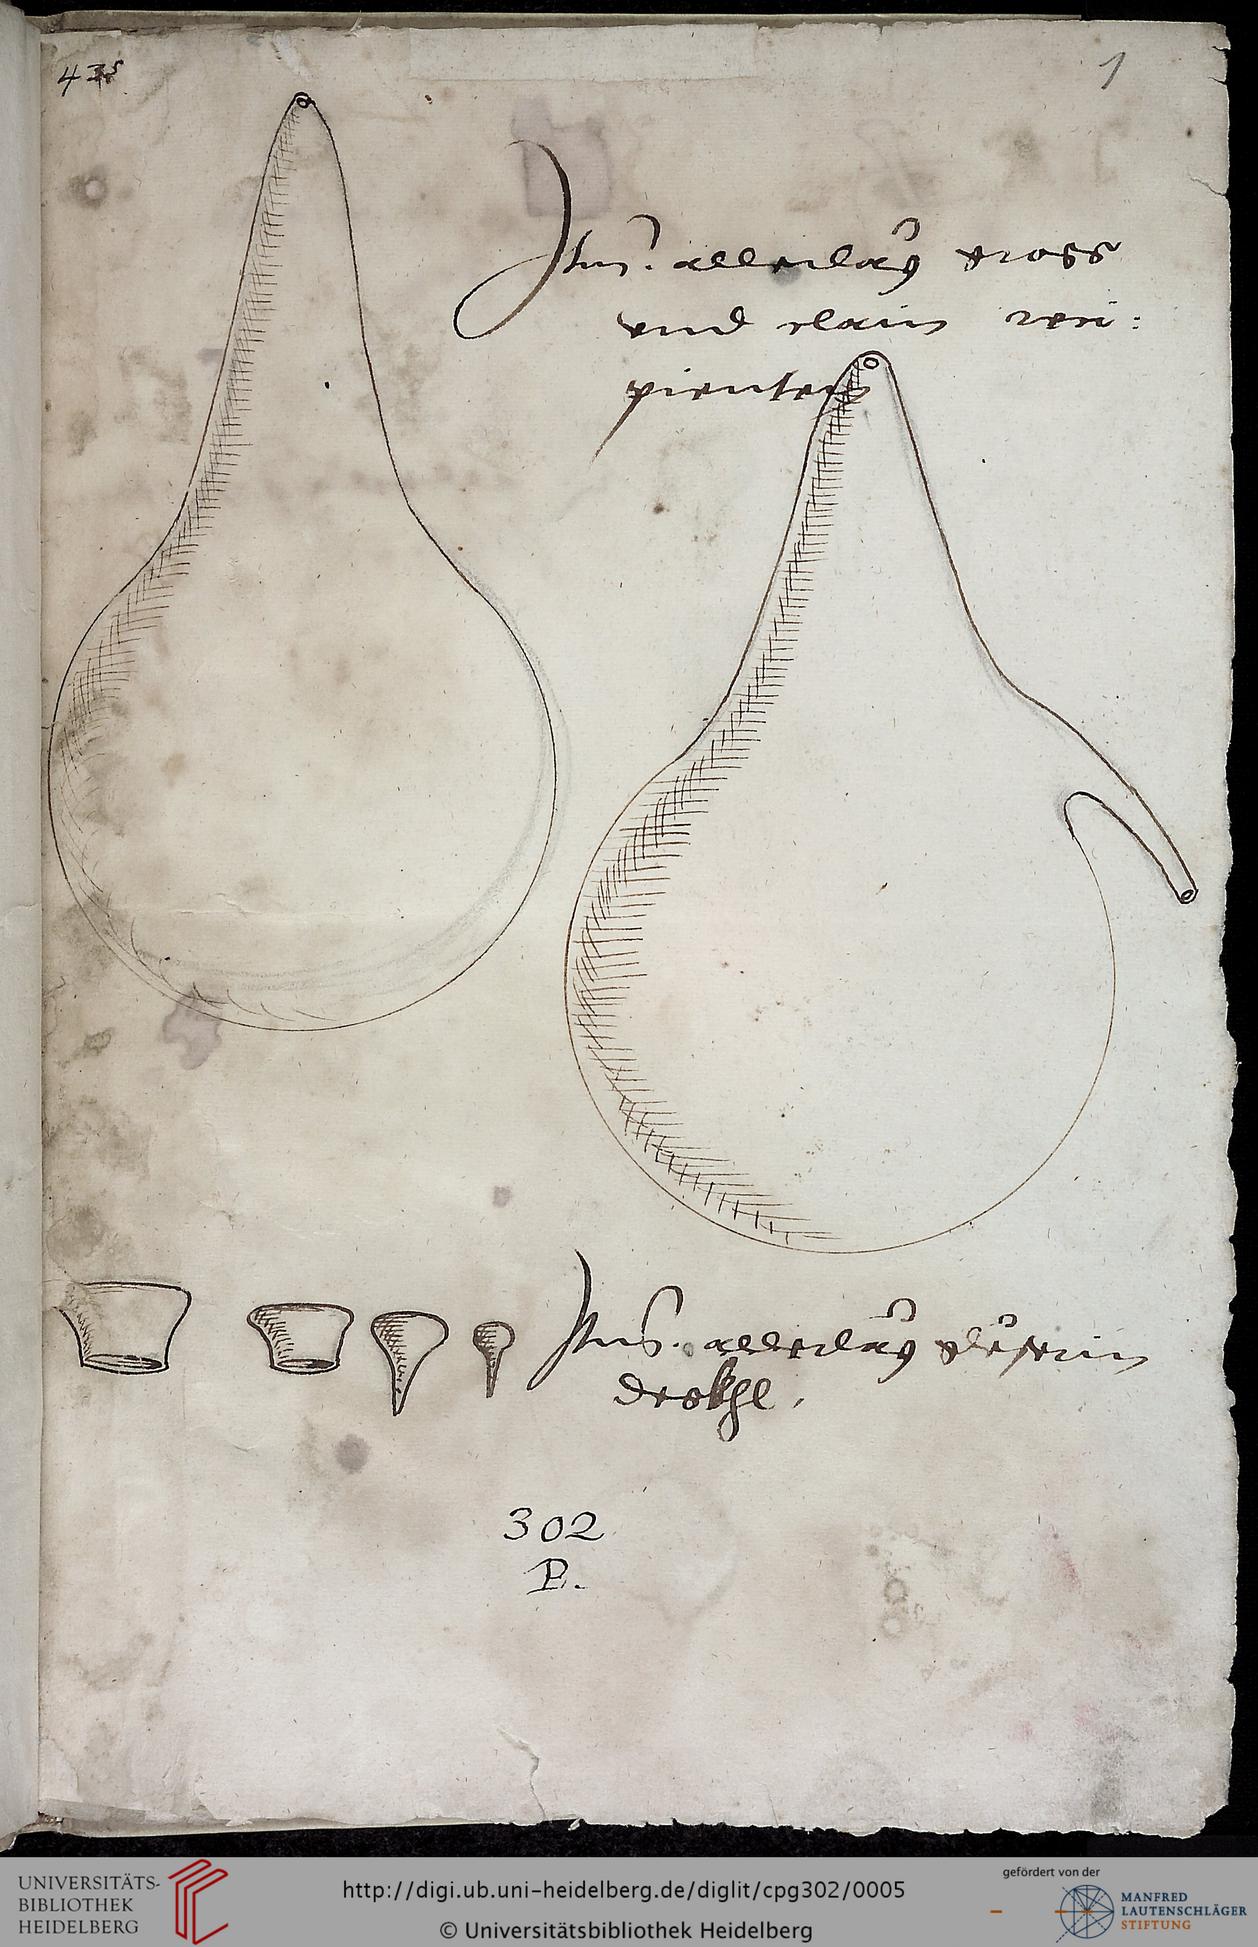 435
1
Jtm̃. allerlaÿ gross
vnd clain reci:
pienten
Jtm̃. allerlaÿ gleserin
dekhl.
302
P.
UNIVERSITÄTS-
BIBLIOTHEK
HEIDELBERG
http://digi.ub.uni-heidelberg.de/diglit/cpg302/0005
© Universitätsbibliothek Heidelberg
gefördert von der
MANFRED
LAUTENSCHLÄGER
STIFTUNG